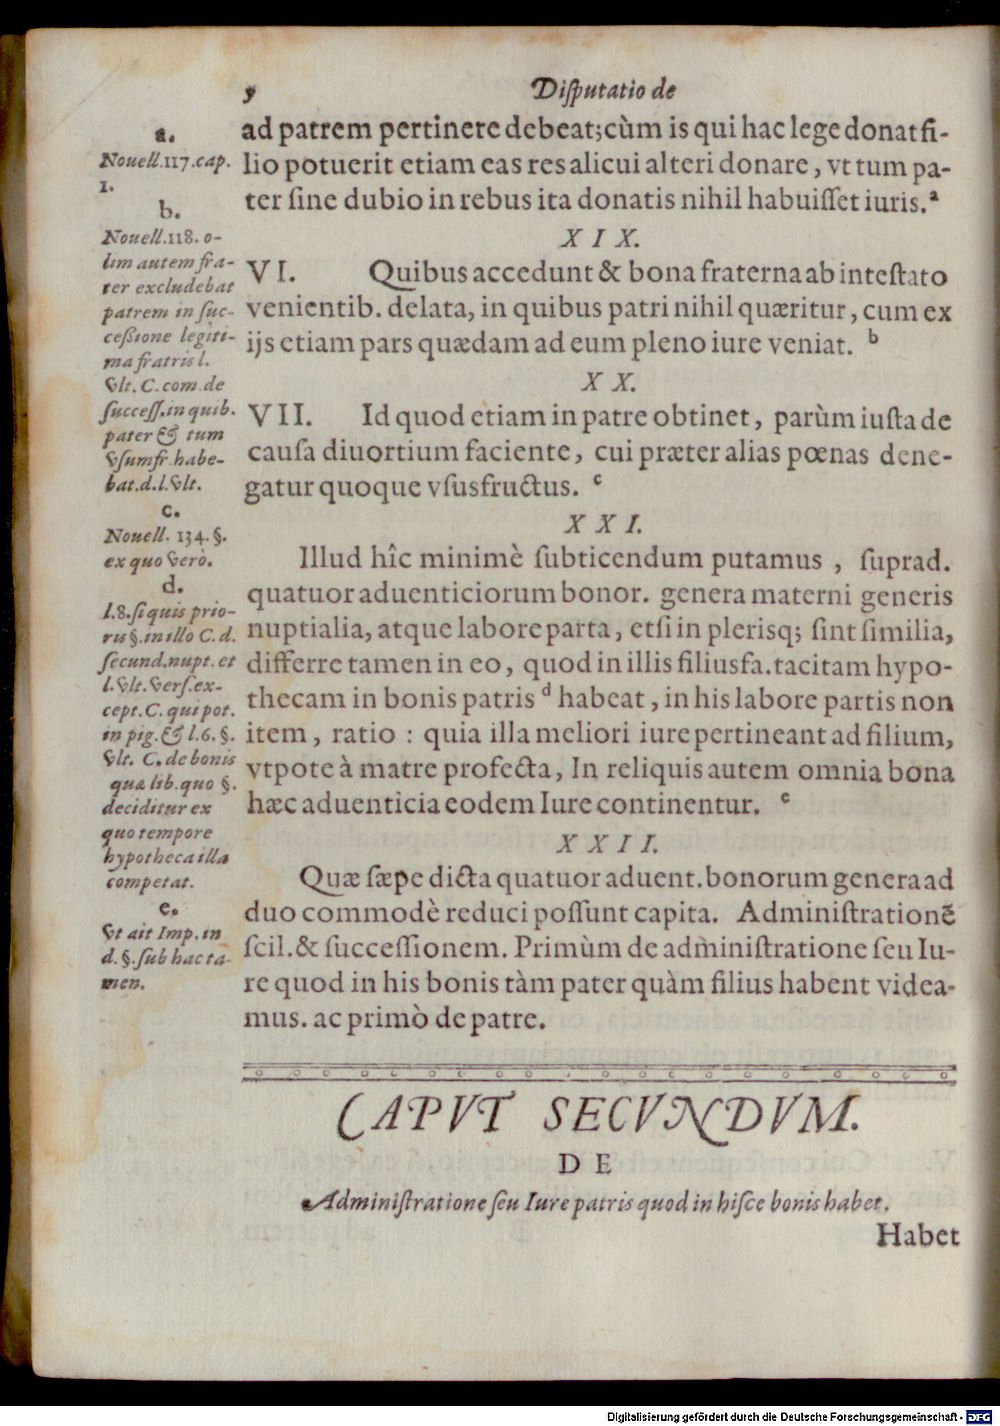 y Disputatio de
ad patrem pertinere debeat; cùm is qui hac lege donat fi-
lio potuerit etiam eas res alicui alteri donare, vt tum pa-
ter sine dubio in rebus ita donatis nihil habuisset iuris. a
XIX.
VI. Quibus accedunt & bona fraterna ab intestato
venientib. delata, in quibus patri nihil quæritur, cum ex
ijs etiam pars quædam ad eum pleno iure veniat. b
XX.
VII. Id quod etiam in patre obtinet, parùm iusta de
causa diuortium faciente, cui præter alias pœnas dene-
gatur quoque vsusfructus. c
XXI.
Illud hîc minimè subticendum putamus, suprad.
quatuor aduenticiorum bonor. genera materni generis
nuptialia, atque labore parta, etsi in plerisq; sint similia,
differre tamen in eo, quod in illis filiusfa. tacitam hypo-
thecam in bonis patris d habeat, in his labore partis non
item, ratio : quia illa meliori iure pertineant ad filium,
vtpote à matre profecta, In reliquis autem omnia bona
hæc aduenticia eodem Iure continentur. e
XXII.
Quæ sæpe dicta quatuor aduent. bonorum genera ad
duo commodè reduci possunt capita. Administrationē
scil. & successionem. Primùm de administratione seu Iu-
re quod in his bonis tàm pater quàm filius habent videa-
mus. ac primò de patre.
a.
Nouell. 117. cap.
1.
b.
Nouell. 118. o-
lim autem fra-
ter excludebat
patrem in suc-
cessione legiti-
ma fratris l.
vlt. C. com. de
success. in quib.
pater & tum
vsumfr. habe-
bat. d. l. vlt.
c.
Nouell. 134. §.
ex quo verò.
d.
l. 8. si quis prio-
ris §. in illo C. d.
secund. nupt. et
l. vlt. vers. ex-
cept. C. qui pot.
in pig. & l. 6. §.
vlt. C. de bonis
quæ lib. quo §.
deciditur ex
quo tempore
hypotheca illa
competat.
e.
Vt ait Imp. in
d. §. sub hac ta-
men.
CAPVT SECVNDVM.
DE
Administratione seu Iure patris quod in hisce bonis habet.
Habet
Digitalisierung gefördert durch die Deutsche Forschungsgemeinschaft - DFG